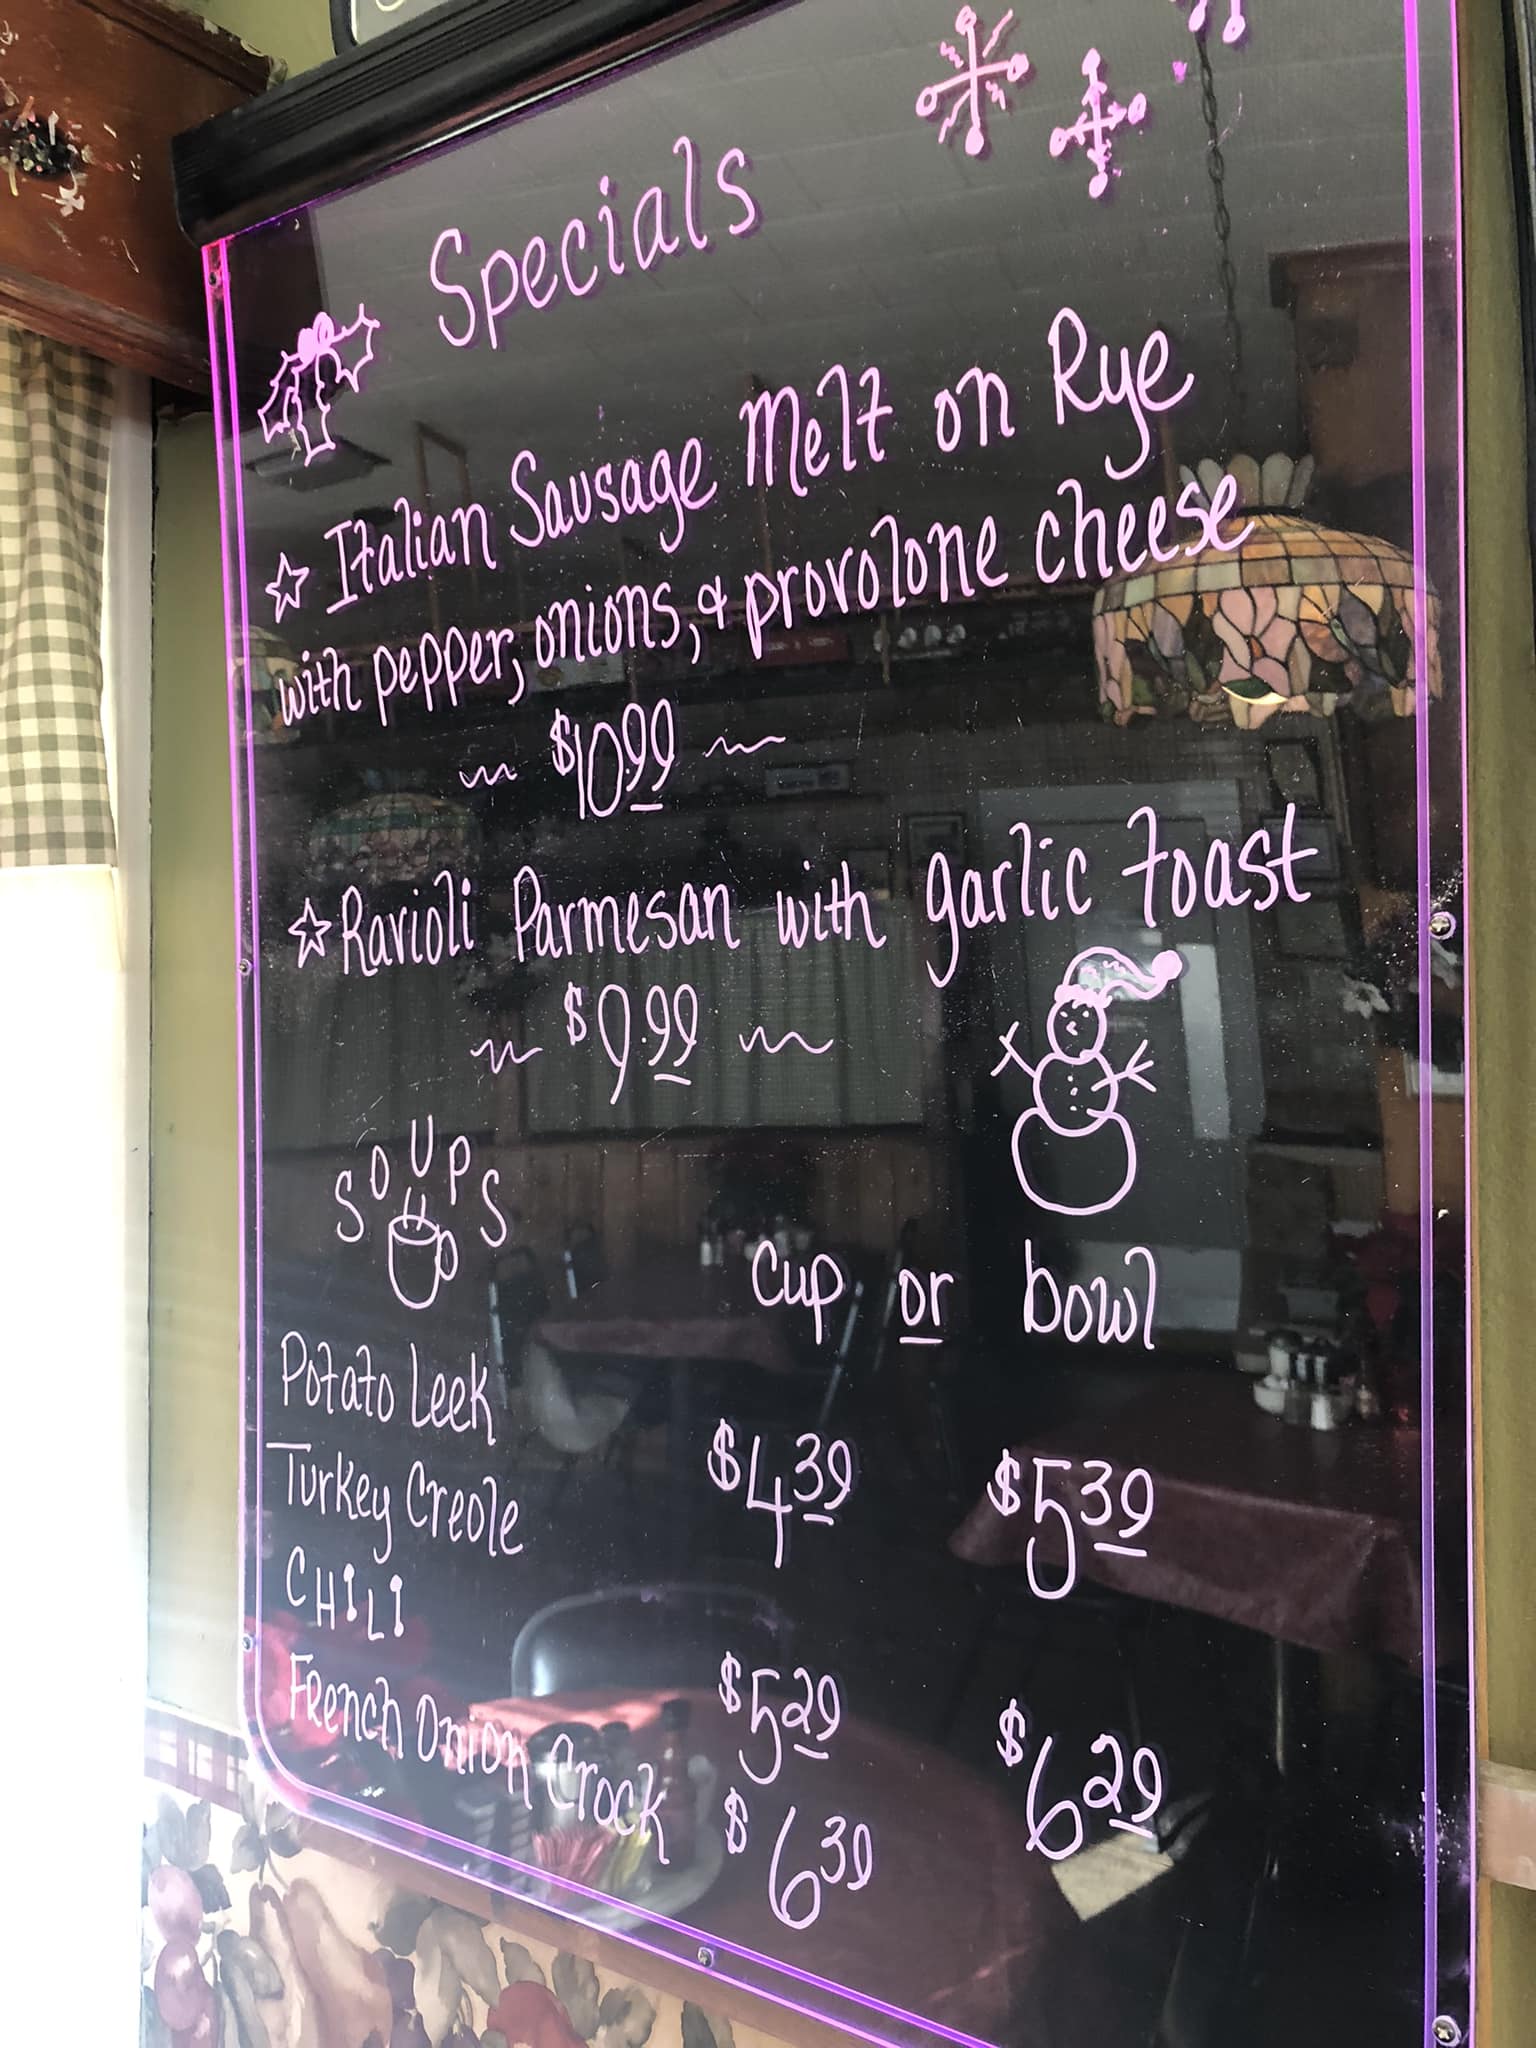 Specials
Italian Sausage Melt on Rye
with pepper, onions, & provolone cheese
$10.99
Ravioli Parmesan with garlic toast
$9.99
SOUPS
Cup or bowl
Potato Leek
$4.39 $5.39
Turkey Creole
CHILI
$5.29 $6.29
French Onion Crock $6.39